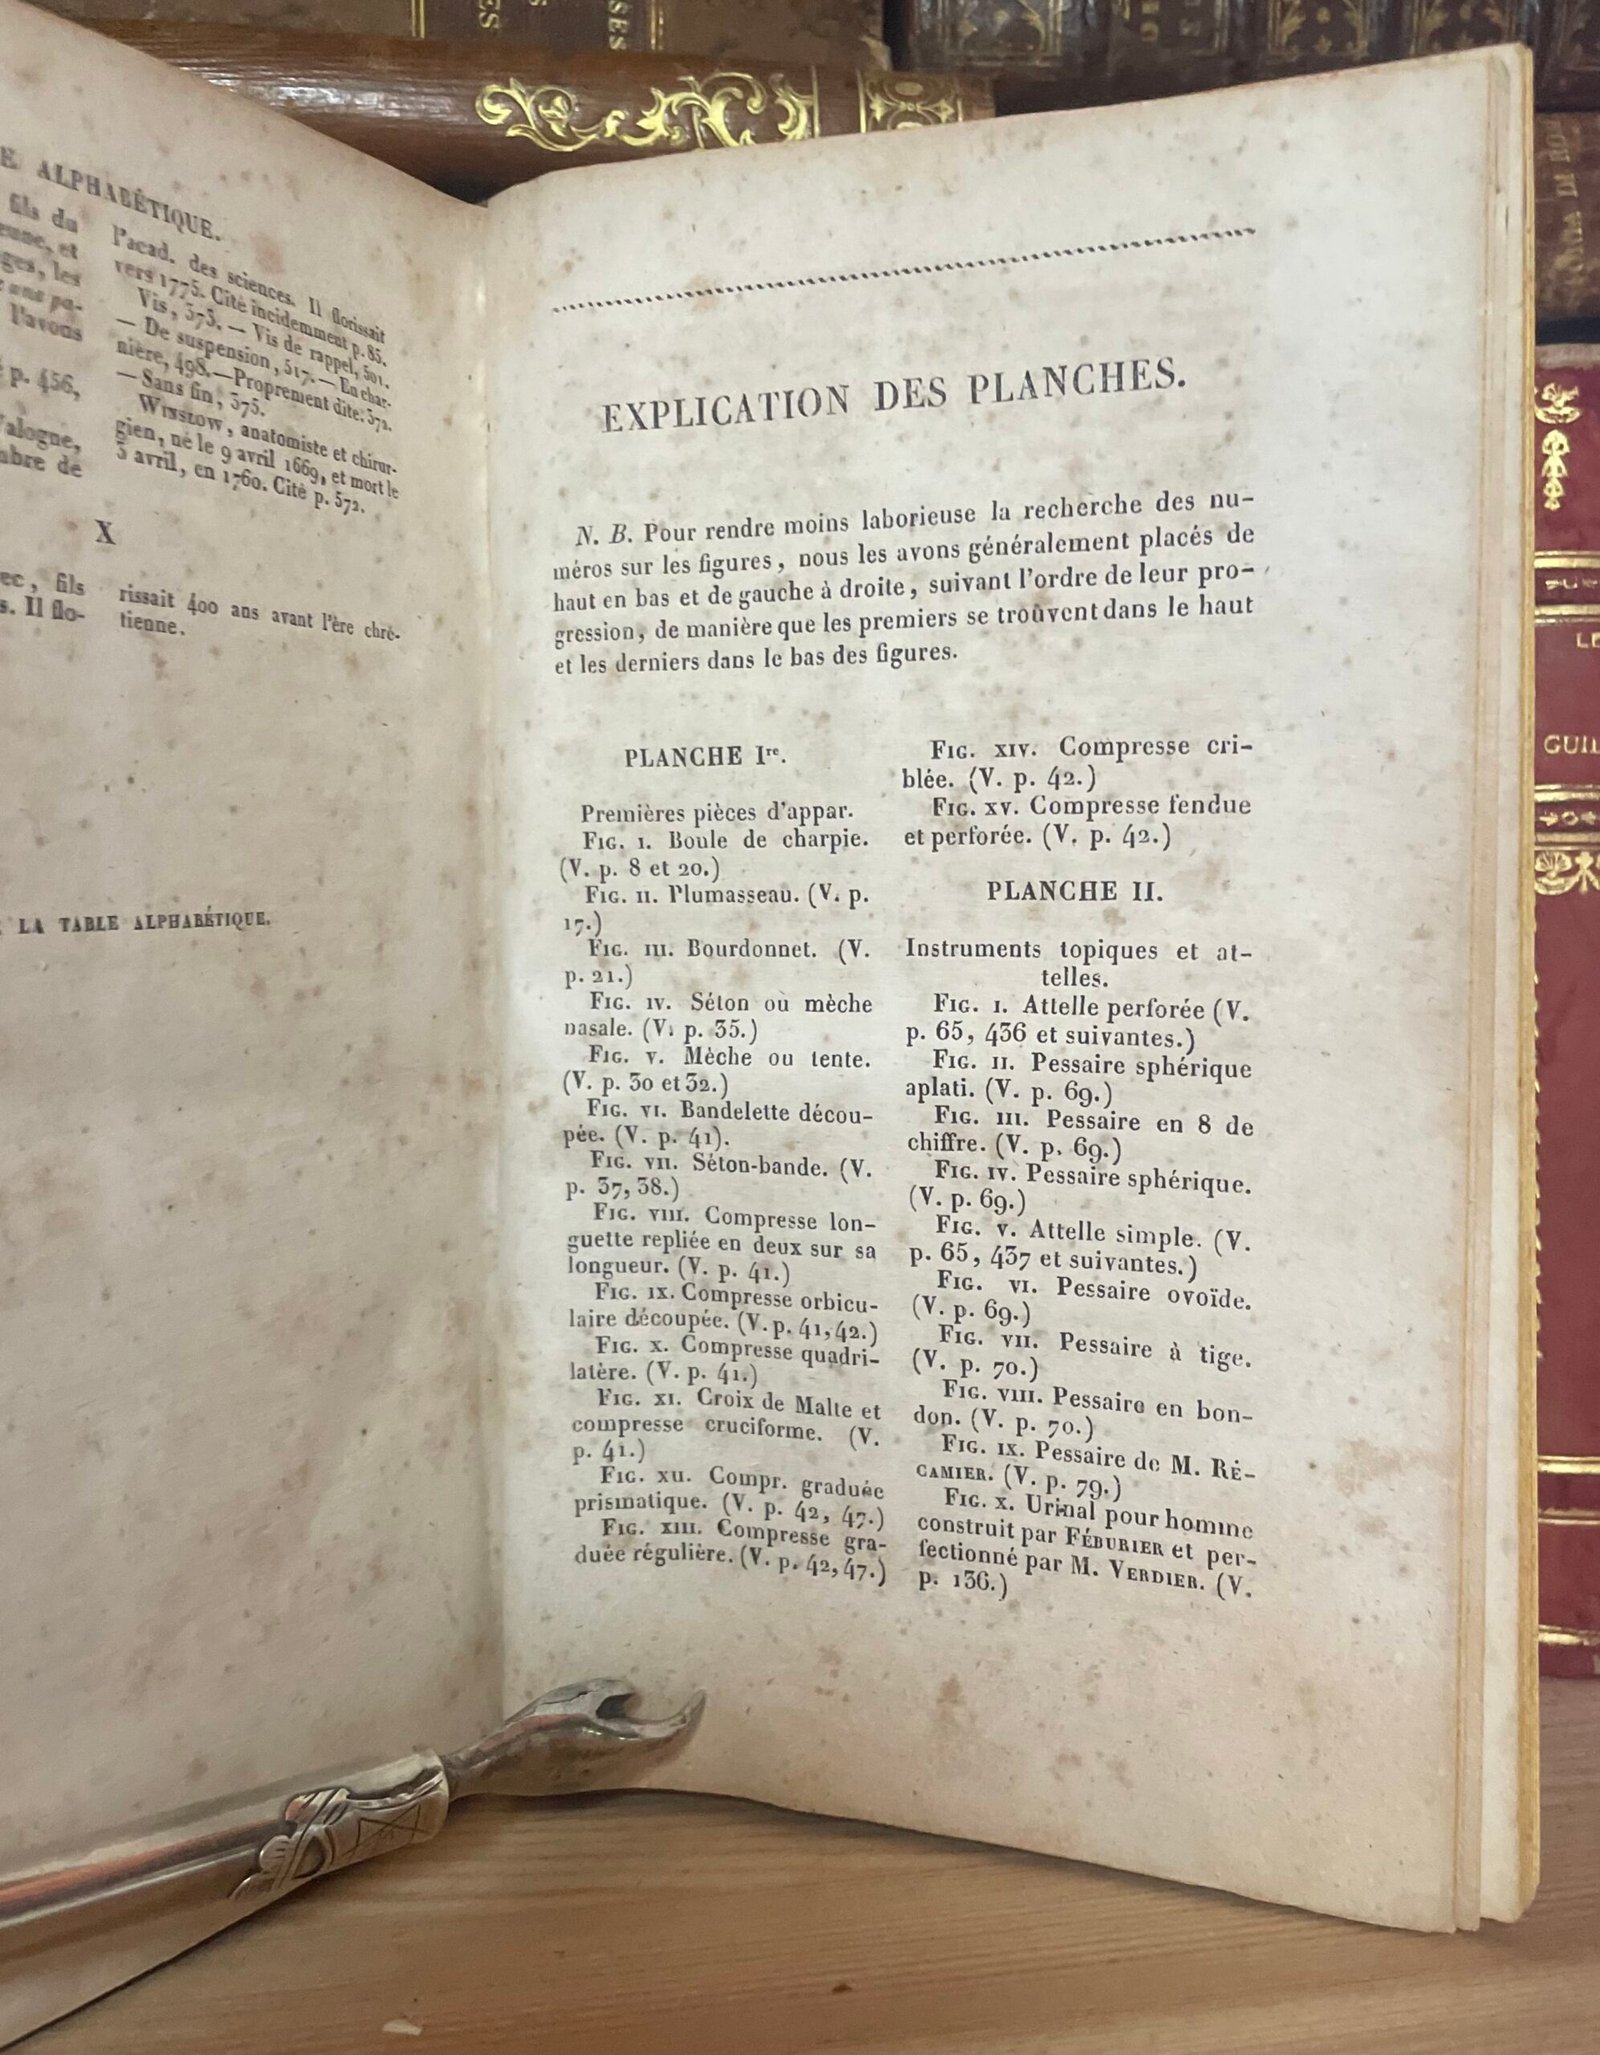 E ALPHABÉTIQUE.
fils du
et
les
pa-
l'avons
p. 456,
alogne,
bre de
l'acad. des sciences. Il florissait
vers 1775. Cité incidemment p. 85.
Vis, 373. — Vis de rappel, 501.
— De suspension, 517. — En char-
nière, 498. — Proprement dite: 372.
— Sans fin, 375.
Winslow, anatomiste et chirur-
gien, né le 9 avril 1669, et mort le
3 avril, en 1760. Cité p. 572.
X
ec, fils
s. Il flo-
rissait 400 ans avant l'ère chré-
tienne.
LA TABLE ALPHABÉTIQUE.
EXPLICATION DES PLANCHES.
N. B. Pour rendre moins laborieuse la recherche des nu-
méros sur les figures, nous les avons généralement placés de
haut en bas et de gauche à droite, suivant l'ordre de leur pro-
gression, de manière que les premiers se trouvent dans le haut
et les derniers dans le bas des figures.
PLANCHE Ire.
Premières pièces d'appar.
Fig. i. Boule de charpie.
(V. p. 8 et 20.)
Fig. ii. Plumasseau. (V. p.
17.)
Fig. iii. Bourdonnet. (V.
p. 21.)
Fig. iv. Séton ou mèche
nasale. (V. p. 35.)
Fig. v. Mèche ou tente.
(V. p. 30 et 32.)
Fig. vi. Bandelette décou-
pée. (V. p. 41).
Fig. vii. Séton-bande. (V.
p. 37, 38.)
Fig. viii. Compresse lon-
guette repliée en deux sur sa
longueur. (V. p. 41.)
Fig. ix. Compresse orbicu-
laire découpée. (V. p. 41, 42.)
Fig. x. Compresse quadri-
latère. (V. p. 41.)
Fig. xi. Croix de Malte et
compresse cruciforme. (V.
p. 41.)
Fig. xii. Compr. graduée
prismatique. (V. p. 42, 47.)
Fig. xiii. Compresse gra-
duée régulière. (V. p. 42, 47.)
Fig. xiv. Compresse cri-
blée. (V. p. 42.)
Fig. xv. Compresse fendue
et perforée. (V. p. 42.)
PLANCHE II.
Instruments topiques et at-
telles.
Fig. i. Attelle perforée (V.
p. 65, 436 et suivantes.)
Fig. ii. Pessaire sphérique
aplati. (V. p. 69.)
Fig. iii. Pessaire en 8 de
chiffre. (V. p. 69.)
Fig. iv. Pessaire sphérique.
(V. p. 69.)
Fig. v. Attelle simple. (V.
p. 65, 437 et suivantes.)
Fig. vi. Pessaire ovoïde.
(V. p. 69.)
Fig. vii. Pessaire à tige.
(V. p. 70.)
Fig. viii. Pessaire en bon-
don. (V. p. 70.)
Fig. ix. Pessaire de M. Ré-
camier. (V. p. 79.)
Fig. x. Urinal pour homme
construit par Féburier et per-
fectionné par M. Verdier. (V.
p. 136.)
LE
GUIL